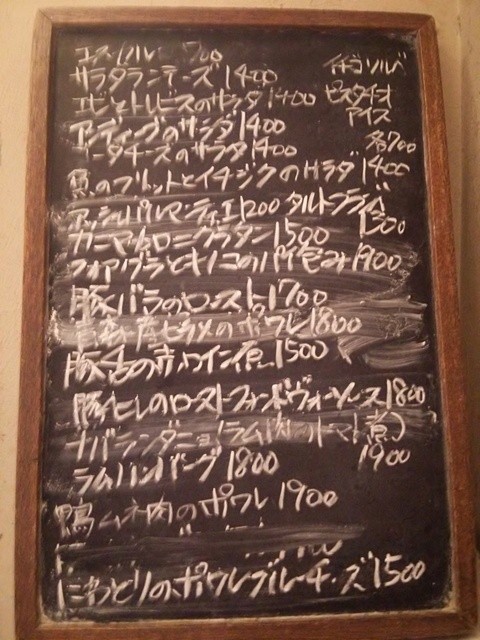 700
サラダランテーズ 1400
エビとトレビスのサラダ 1400
アンディーブのサラダ 1400
チーズのサラダ 1400
のフリットとイチジクのサラダ 1400
アッシパルマンティエ 1200 タルトフランベ 1500
カニマカロニグラタン 1500
フォアグラとキノコのパイ包み 1900
豚バラのロースト 1700
産ヒラメのポワレ 1800
豚舌の赤ワイン煮 1500
豚ヒレのローストフォンドヴォーソース 1800
ナバランダニョ(ラム肉のトマト煮) 1900
ラムハンバーグ 1800
鴨ムネ肉のポワレ 1900
にわとりのポワレブルーチーズ 1500
イチゴソルベ
ピスタチオ
アイス
各700